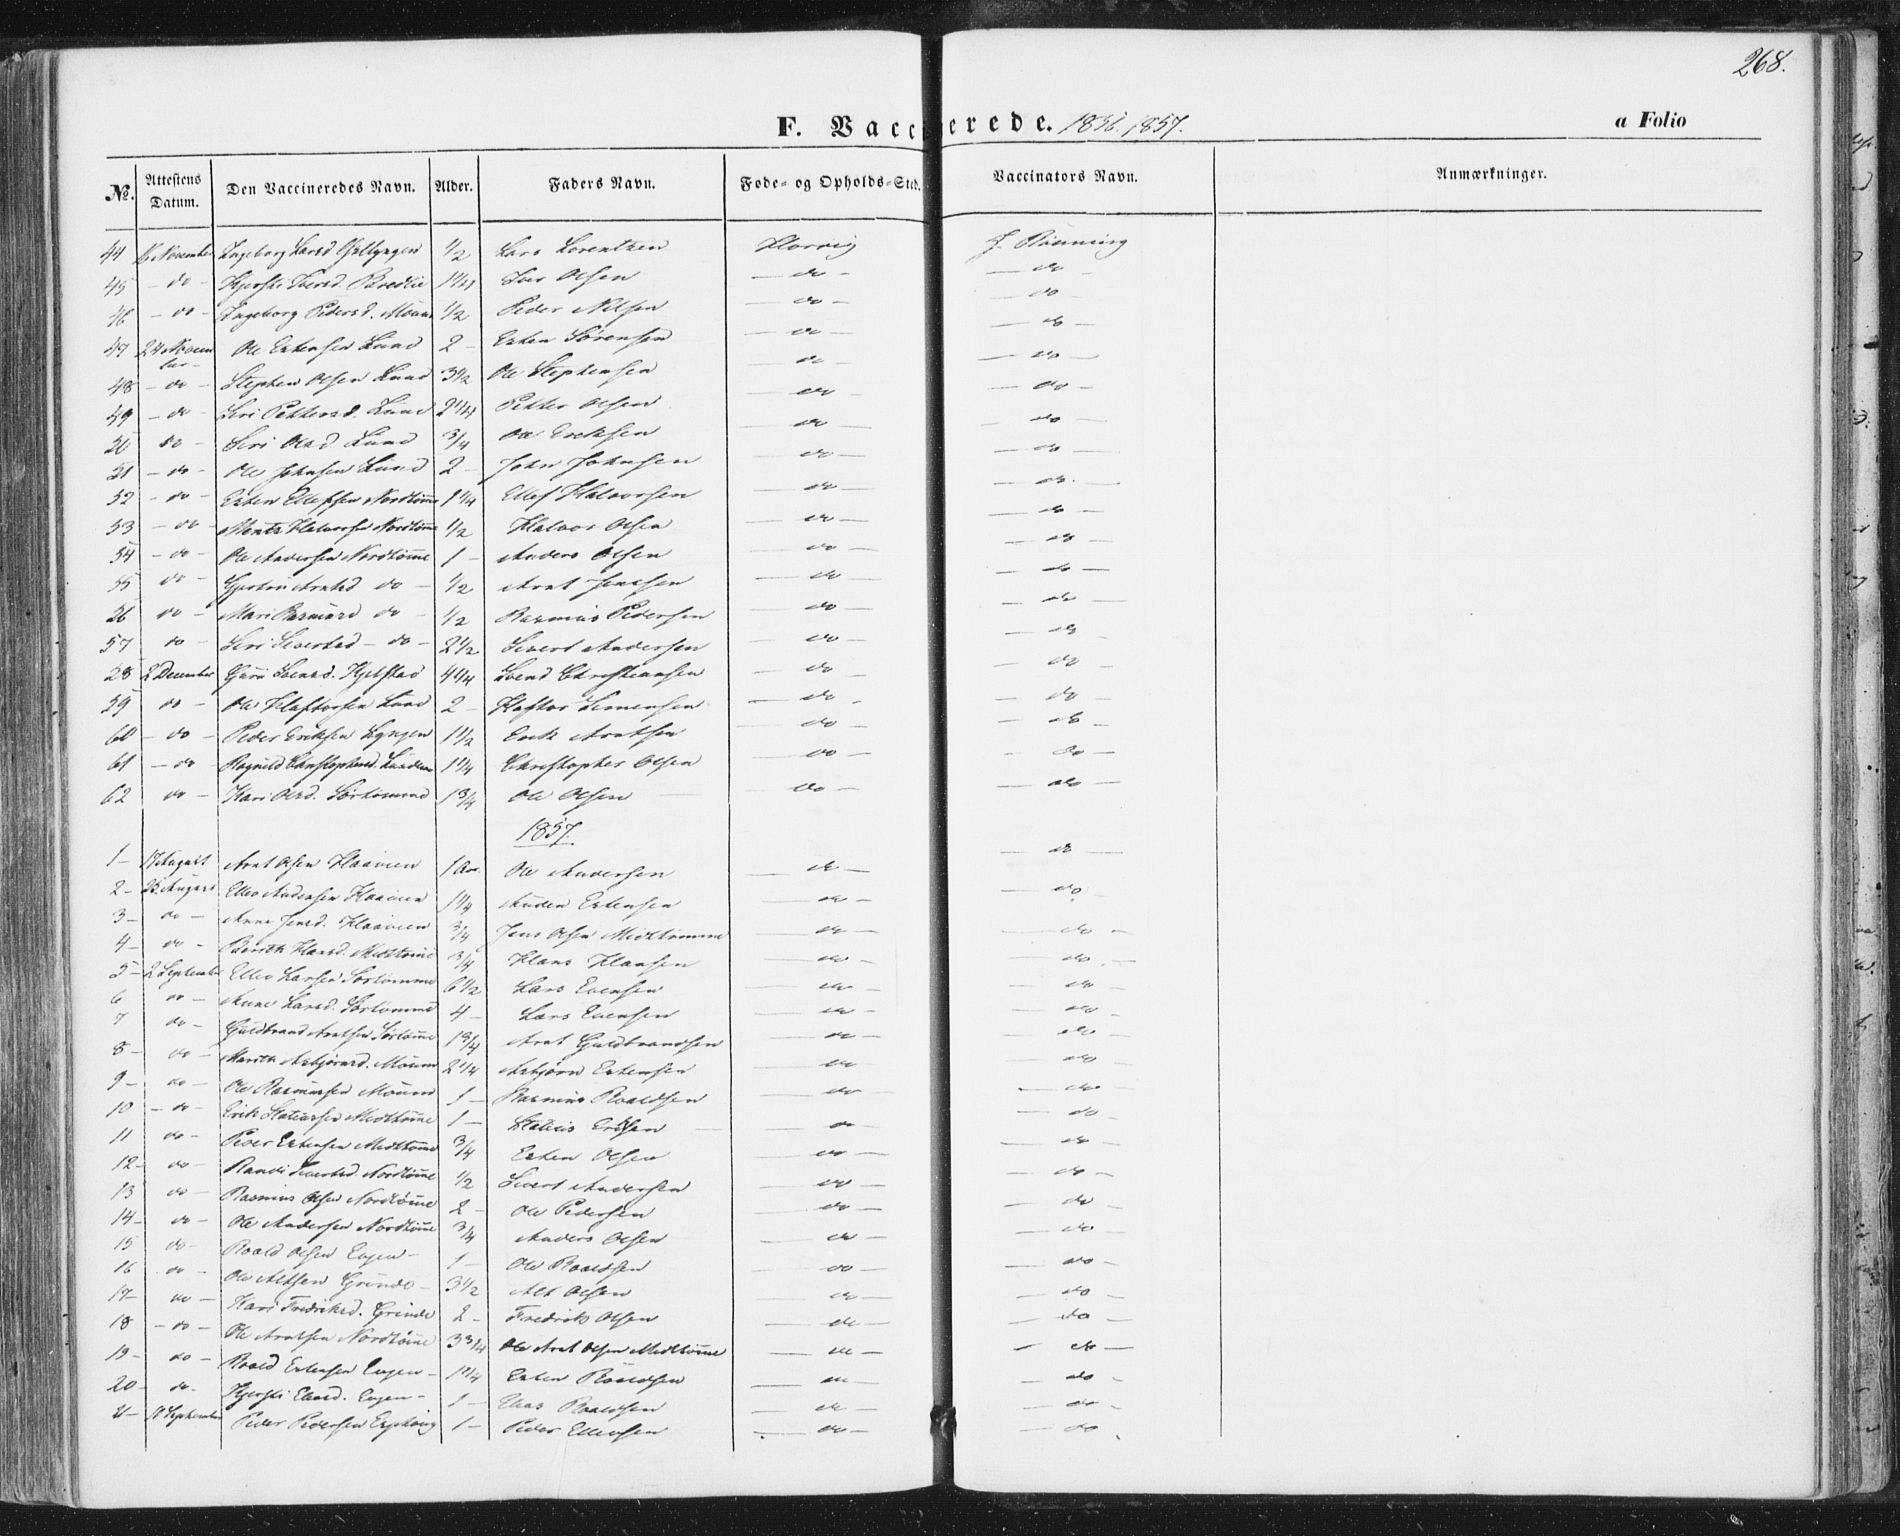 268.
F. Vaccinerede. 1856. 1857. a Folio
No. Attestens Datum. Den Vaccineredes Navn. Alder. Faders Navn. Føde- og Opholds-Sted. Vaccinators Navn. Anmærkninger.
44 16 November Ingeborg Larsd 1/2 Lars Lorentzen Horrig J. Rönning
45 - do - Kjersti Iversd. Bredlie 1 1/4 Iver Olsen - do - - do -
46 - do - Ingeborg Pedersd. Moum 1/2 Peder Nilsen - do - - do -
47 24 Novem ber - Ole Estensen Lund 2 - Esten Sørensen - do - - do -
48 - do - Stephen Olsen Lund 3 1/2 Ole Stephensen - do - - do -
49 - do - Siri Pettersd. Lund 2 1/4 Petter Olsen - do - - do -
50 do - Siri Olsd Lund 3/4 Ole Eriksen - do - - do -
51 - do - Ole Johnsen Lund 2 - John Johnsen - do - - do -
52 - do - Esten Ellefsen Nordtömme 1 1/4 Ellef Halvorsen - do - - do -
53 - do - Mentz Halvorsen Nordtömme 1/2 Halvor Olsen - do - - do -
54 - do - Ole Andersen Nordtömme 1 - Anders Olsen - do - - do -
55 do - Kjersten Arntsd do - 1/2 Arnt Jensen - do - - do -
56 do - Mari Rasmusd do - 1/2 Rasmus Pedersen - do - - do -
57 do - Siri Sivertsd - do - 2 1/2 Sivert Andersen - do - - do -
58 2 December Guru Svends. Hjelstad 4 1/4 Svend Christiansen - do - - do -
59 do - Ole Haftorsen Lund 2 - Haftor Simensen - do - - do -
60 - do - Peder Eriksen Lyngen 1 1/2 Erik Arntsen - do - - do -
61 - do Ragnild Christophersd. 1 1/4 Christopher Olsen - do - - do -
62 do - Kari Olsd. Sørtomme 1 3/4 Ole Olsen - do - - do -
1857.
1 - 17 August Arnt Olsen Haavien 1 Aar Ole Andersen - do - - do -
2 - 25 August Ellev Audensen Haavien 1 1/4 Auden Estensen - do - - do -
3 - do - Anne Jensd. Haavien 3/4 Jens Olsen Midttömme - do - - do -
4 - do - Berith Hansd. Midttömme 3/4 Hans Hansen - do - - do -
5 - 2 September Ellev Larsen Sørtomme 6 1/2 Lars Evensen - do - - do -
6 do - Anne Larsd. Sørtomme 4 - Lars Evensen - do - - do -
7 do - Guldbrand Arntsen Sørtömme 1 3/4 Arnt Guldbrandsen - do - - do -
8 - do - Marith Asbjørnsd. Moum 2 1/4 Asbjørn Estensen - do - - do -
9 - do - Ole Rasmussen Moum 1 - Rasmus Roaldsen - do - - do -
10 - do - Erik Statiussen Midttömme 1 - Statius Eriksen - do - - do -
11 do - Peder Estensen Midttömme 3/4 Esten Olsen - do - - do -
12 - do - Randi Sivertsd. Nordtömme 1/2 Sivert Andersen - do - - do -
13 do - Rasmus Olsen Nordtömme 2 - Ole Pedersen - do - - do -
14 - do - Ole Andersen Nordtömme 3/4 Anders Olsen - do - - do -
15 do - Roald Olsen Engen - 1 - Ole Roaldsen - do - - do -
16 do - Ole Altsen Grinde - 3 1/2 Alt Olsen - do - - do -
17 - do - Kari Fredriksd. Grinde 2 - Fredrik Olsen - do - - do -
18 - do - Ole Arntsen Nordtömme 3 3/4 Ole Arnt Olsen Midttömme - do - - do -
19 - do - Roald Estensen Engen - 1 1/4 Esten Roaldsen - do - - do -
20 - do - Kjersti Eliasd. Engen - 1 - Elias Roaldsen - do - - do -
21 - 18 September Peder Pedersen 1 - Peder Ellensen - do - - do -